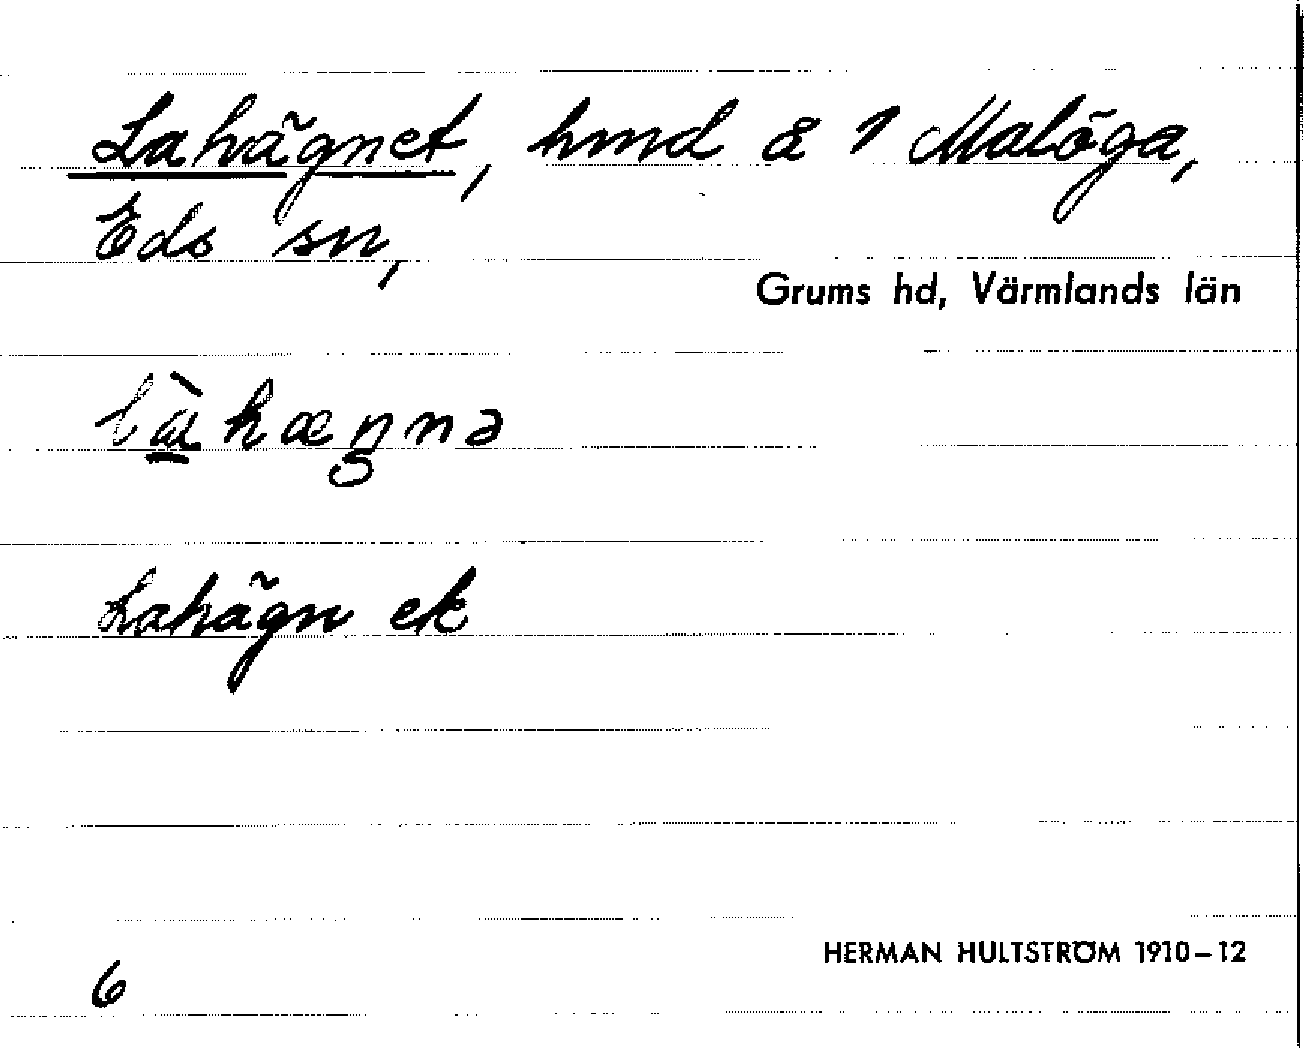 Lahägnet, hmd å 1 Malöga,
Eds sn,
Grums hd, Värmlands län
làhæŋnə
Lahägn ek
HERMAN HULTSTRÖM 1910–12
6